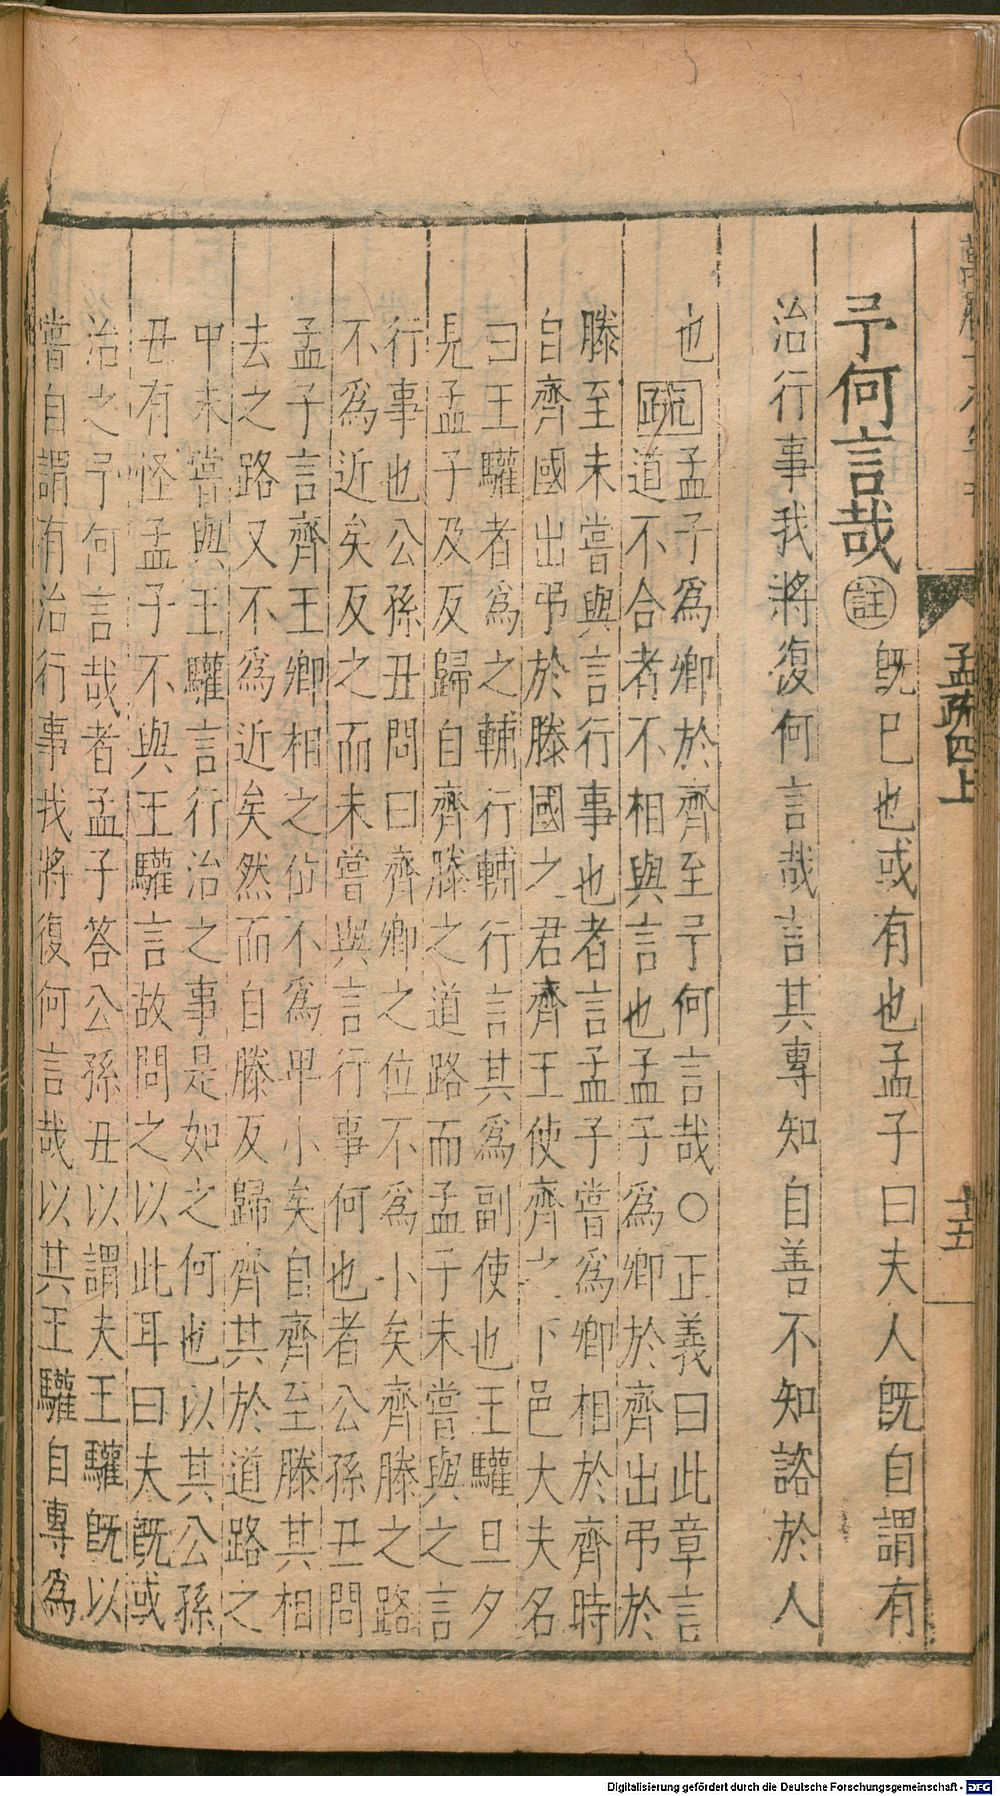 孟疏四上
十五
予何言哉註旣已也或有也孟子曰夫人旣自謂有
治行事我將復何言哉言其專知自善不知諮於人
也疏孟子爲卿於齊至予何言哉○正義曰此章言
道不合者不相與言也孟子爲卿於齊出弔於
滕至未嘗與言行事也者言孟子嘗爲卿相於齊時
自齊國出弔於滕國之君齊王使齊之下邑大夫名
曰王驩者爲之輔行輔行言其爲副使也王驩旦夕
見孟子及反歸自齊滕之道路而孟子未嘗與之言
行事也公孫丑問曰齊卿之位不爲小矣齊滕之路
不爲近矣反之而未嘗與言行事何也者公孫丑問
孟子言齊王卿相之位不爲卑小矣自齊至滕其相
去之路又不爲近矣然而自滕反歸齊其於道路之
中未嘗與王驩言行治之事是如之何也以其公孫
丑有怪孟子不與王驩言故問之以此耳曰夫旣或
治之予何言哉者孟子答公孫丑以謂夫王驩旣以
嘗自謂有治行事我將復何言哉以其王驩自專爲
Digitalisierung gefördert durch die Deutsche Forschungsgemeinschaft - DFG